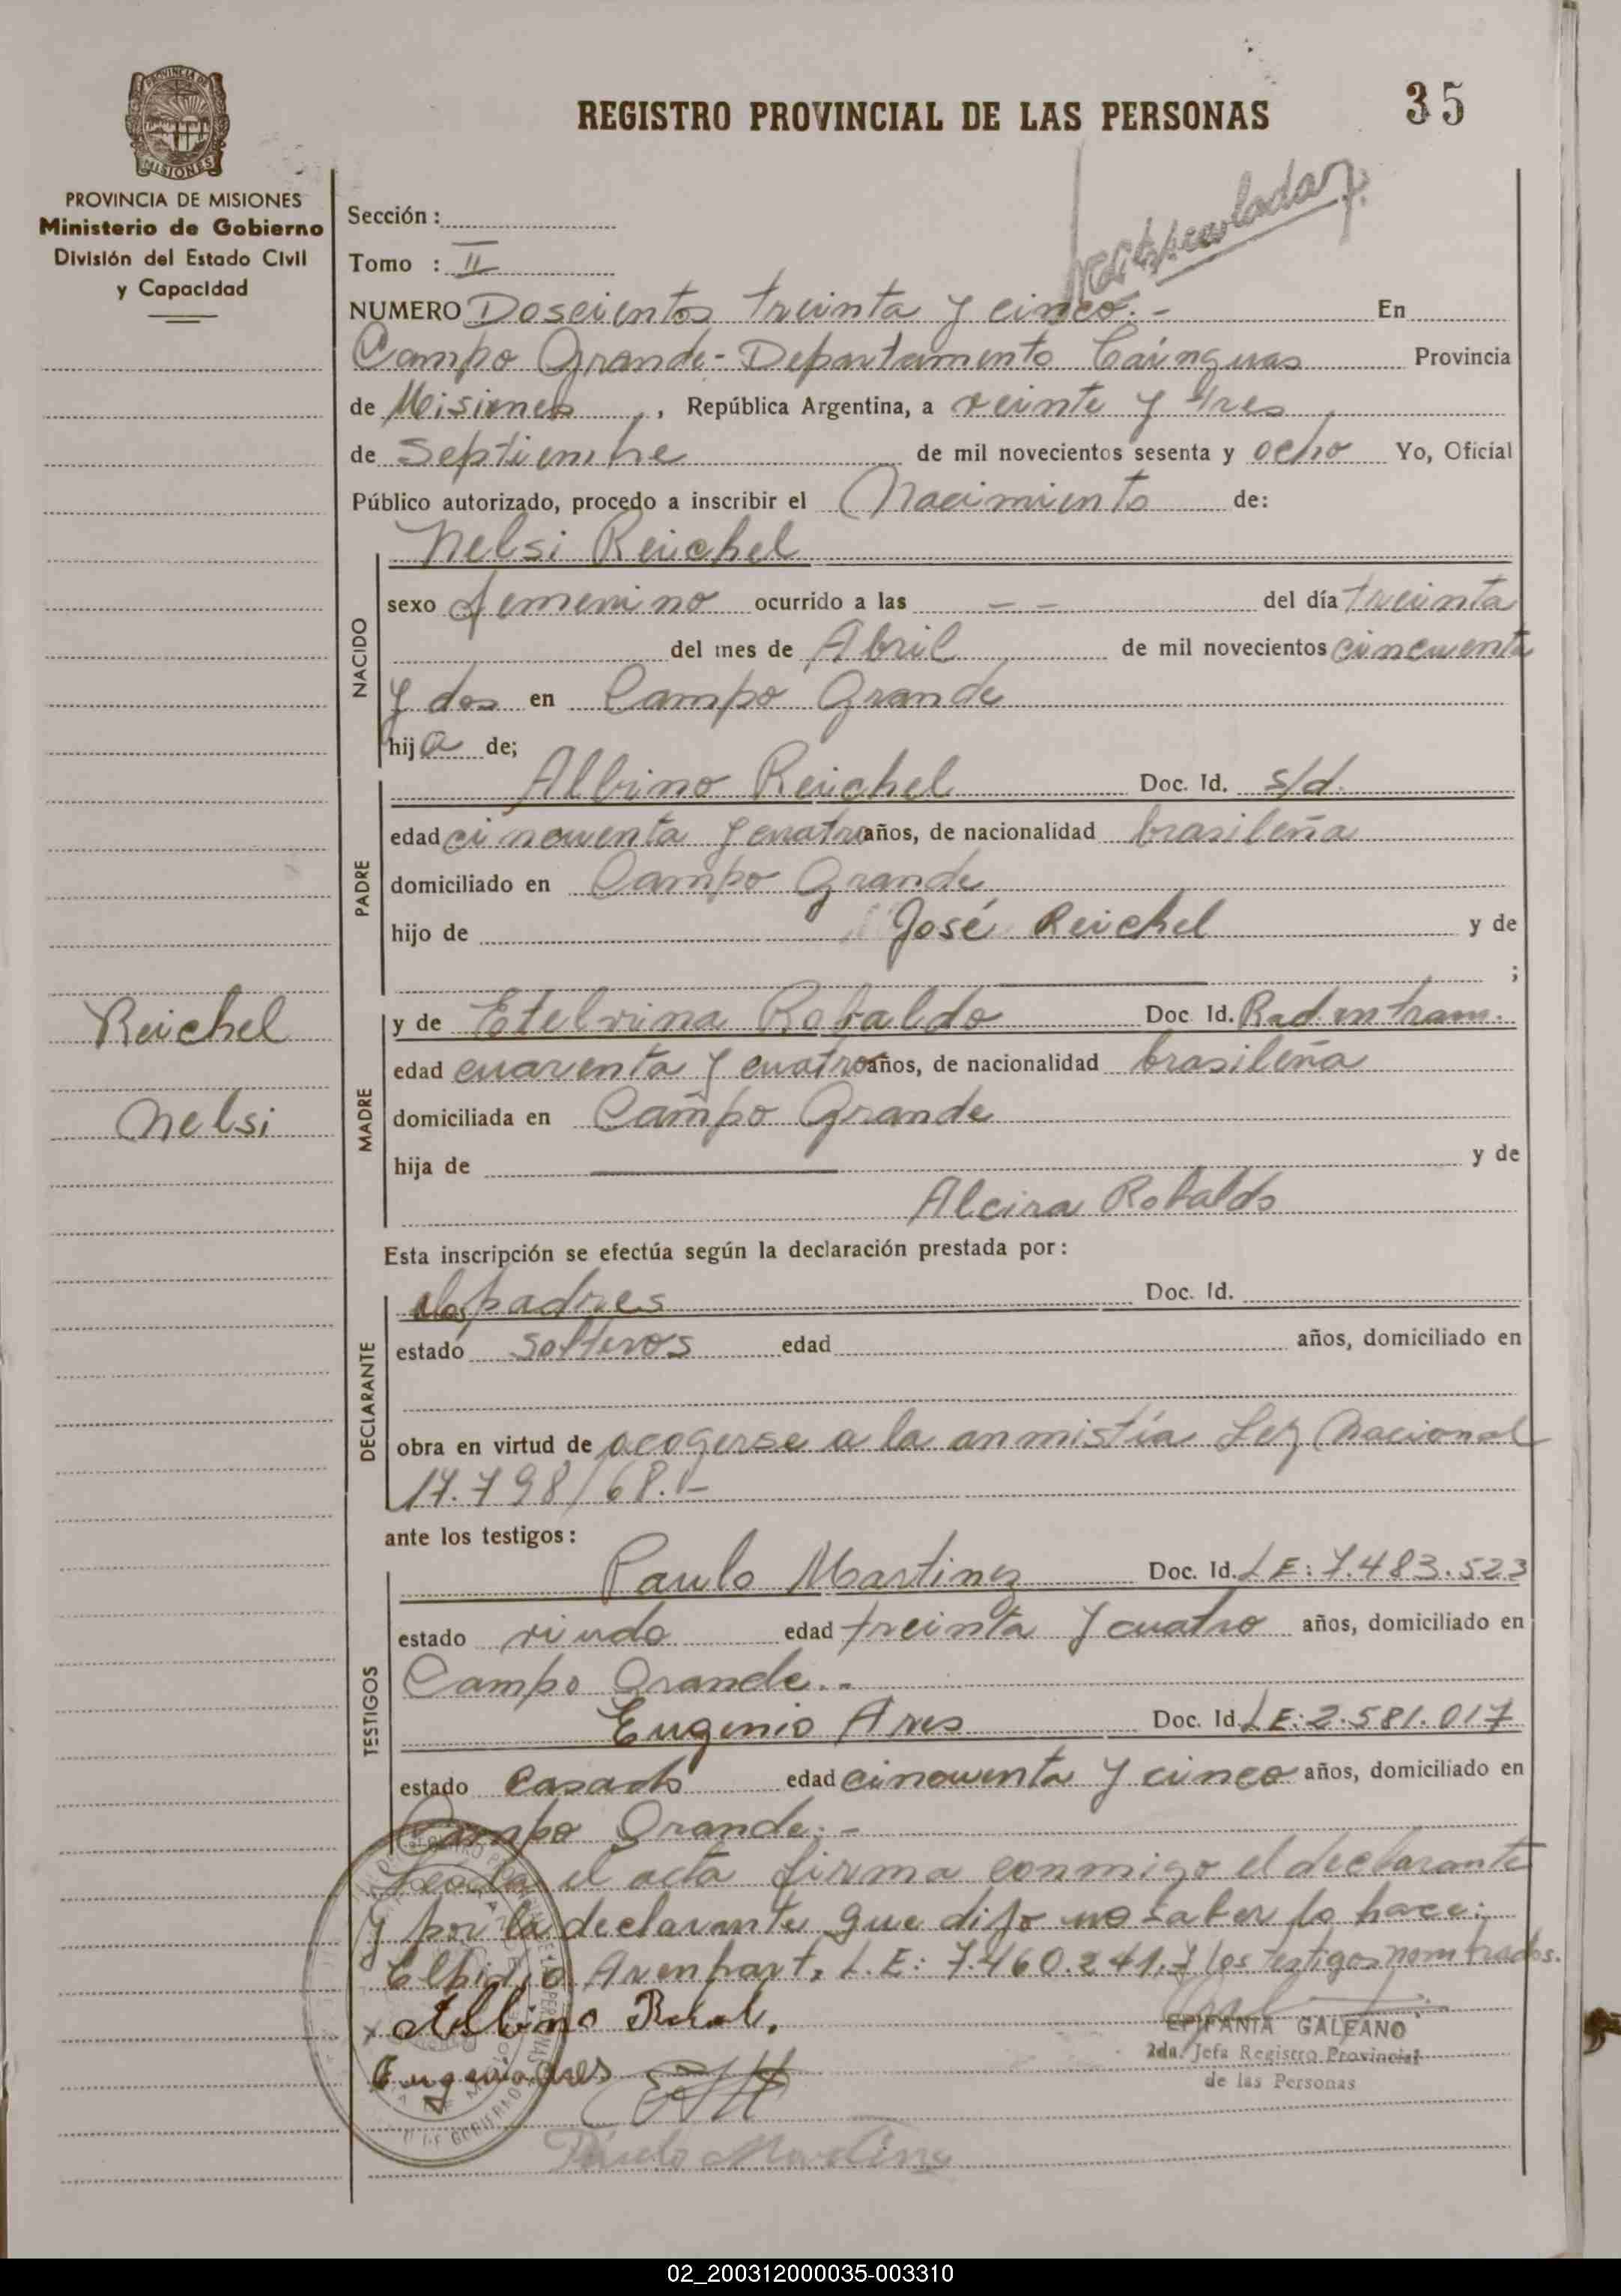 REGISTRO PROVINCIAL DE LAS PERSONAS
35
PROVINCIA DE MISIONES
PROVINCIA DE MISIONES
Ministerio de Gobierno
División del Estado Civil
y Capacidad
Sección :
Tomo : II
NUMERO Doscientos treinta y cinco.- En
Campo Grande- Departamento Cainguas Provincia
de Misiones, República Argentina, a veinte y tres
de Septiembre de mil novecientos sesenta y ocho Yo, Oficial
Público autorizado, procedo a inscribir el Nacimiento de:
Nelsi Reichel
NACIDO
sexo femenino ocurrido a las - - del día treinta
del mes de Abril de mil novecientos cincuenta
y dos en Campo Grande
hija de;
PADRE
Albino Reichel Doc. Id. s/d.
edad cincuenta y cuatro años, de nacionalidad brasileña
domiciliado en Campo Grande
hijo de José Reichel y de
;
Reichel
Nelsi
MADRE
y de Etelvina Robaldo Doc. Id. Rad. en tram.
edad cuarenta y cuatro años, de nacionalidad brasileña
domiciliada en Campo Grande
hija de y de
Alcira Robaldo
Esta inscripción se efectúa según la declaración prestada por :
DECLARANTE
los padres Doc. Id.
estado solteros edad años, domiciliado en
obra en virtud de acogerse a la anmistía Ley Nacional
17.798/68.-
ante los testigos :
TESTIGOS
Paulo Martinez Doc. Id. LE: 7.483.523
estado viudo edad treinta y cuatro años, domiciliado en
Campo Grande.-
Eugenio Ares Doc. Id. LE: 2.581.017
estado casado edad cincuenta y cinco años, domiciliado en
Campo Grande.-
Leida el acta firma conmigo el declarante
y por la declarante que dijo no saber lo hace:
L.E: 7.460.241. y los testigos nombrados.
x Albino
Eugenio Ares
EPIFANIA GALEANO
2da. Jefa Registro Provincial
de las Personas
Paulo Martinez
02_200312000035-003310